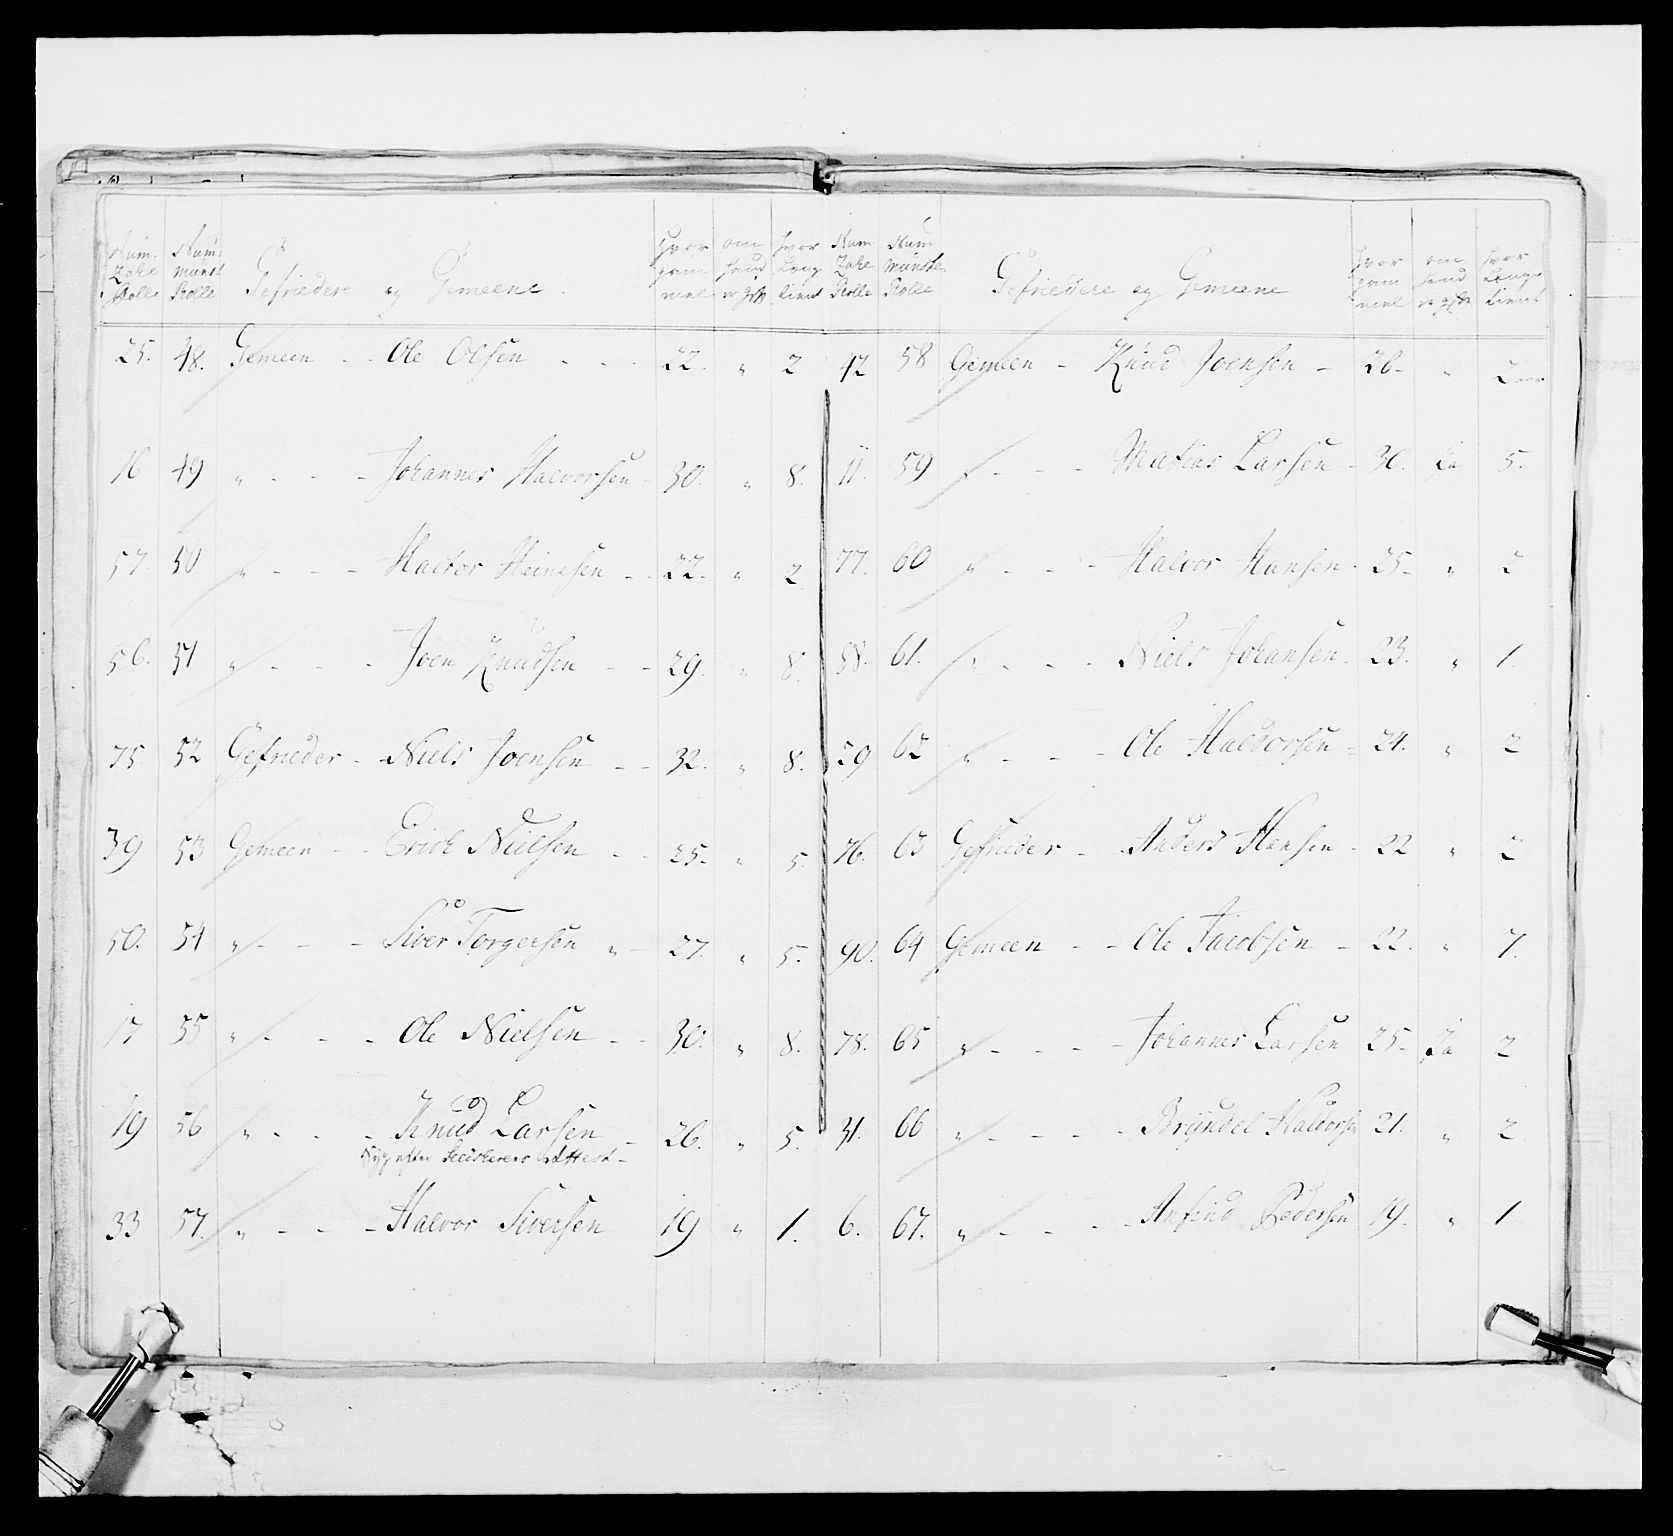 Num. Num. Gefriedere og Gemeene. Hvor om hvor
Zahl Münst gam hand Lang
Rolle Rolle mel er gift tient
25. 48. Gemeen - - Ole Olsen - - - 22. " 2
16 49 " - - - Johannes Halvorsen - 30. " 8.
57. 50 " - - - Haldor Heinesen - - 22. " 2
56. 51 " - - - Joen Knudsen - - 29. " 8.
75. 52 Gefrieder - Niels Joensen - - 32. " 8.
39 53 Gemeen - - Erich Nielsen - - 25. " 5.
50. 54 " - - - Siver Torgersen " - 27. " 5.
17 55 " - - - Ole Nielsen - - 30. " 8.
19 56 " - - - Knud Larsen - 26. " 5.
Syg efter Attest -
33 57. " - - - Halvor Siversen 19 " 1.
Num Num Gefriedere og Gemeene Hvor om hvor
Zahl Münste gam hand Lange
Rolle Rolle mel er gift tient
42 58 Gemeen - Knud Joensen - 26. " 2 aar
11. 59 " - - - Matias Larsen - 30. Ja 5.
77. 60 " - - - Halvor Hansen. 25. " 2
88. 61. " - - - Niels Johansen. 23. " 1.
29 62 " - - - Ole Haldorsen - 24. " 2
76. 63 Gefrieder - Anders Hansen - 22 " 2
90. 64 Gemeen - - Ole Jacobsen - 22. " 7.
78. 65 " - - - - Johannes Larsen 25. Ja 2
31. 66 " - - - - Bryndel Haldorsen 21. " 2
6. 67. " - - - - Anfind Pedersen 19. " 1